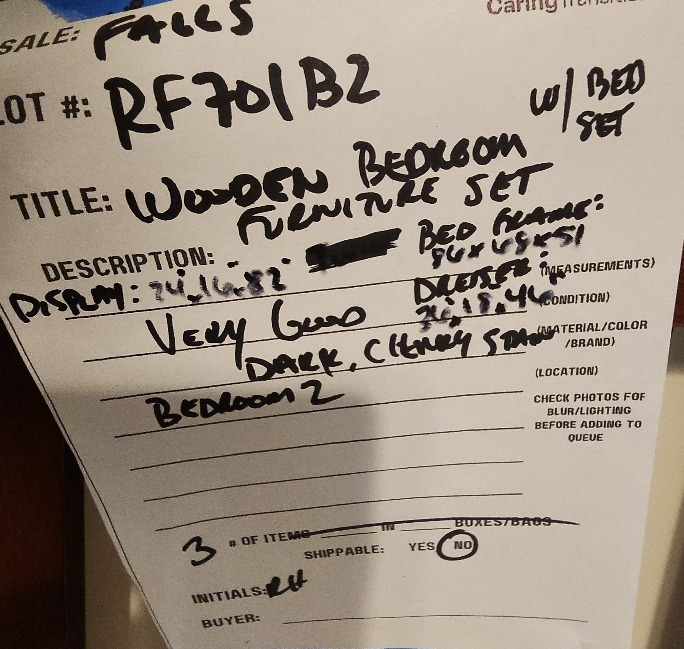 Caring
SALE: FALLS
LOT #: RF701B2
W/ BED
SET
TITLE: WOODEN BEDROOM
FURNITURE SET
DESCRIPTION:
BED FRAME:
DISPLAY:
DRESSER:
(MEASUREMENTS)
VERY GOOD
(CONDITION)
DARK, CHERRY STAIN
(MATERIAL/COLOR
/BRAND)
BEDROOM 2
(LOCATION)
CHECK PHOTOS FOR
BLUR/LIGHTING
BEFORE ADDING TO
QUEUE
3 # OF ITEMS IN BOXES/BAGS
SHIPPABLE: YES NO
INITIALS: RH
BUYER: